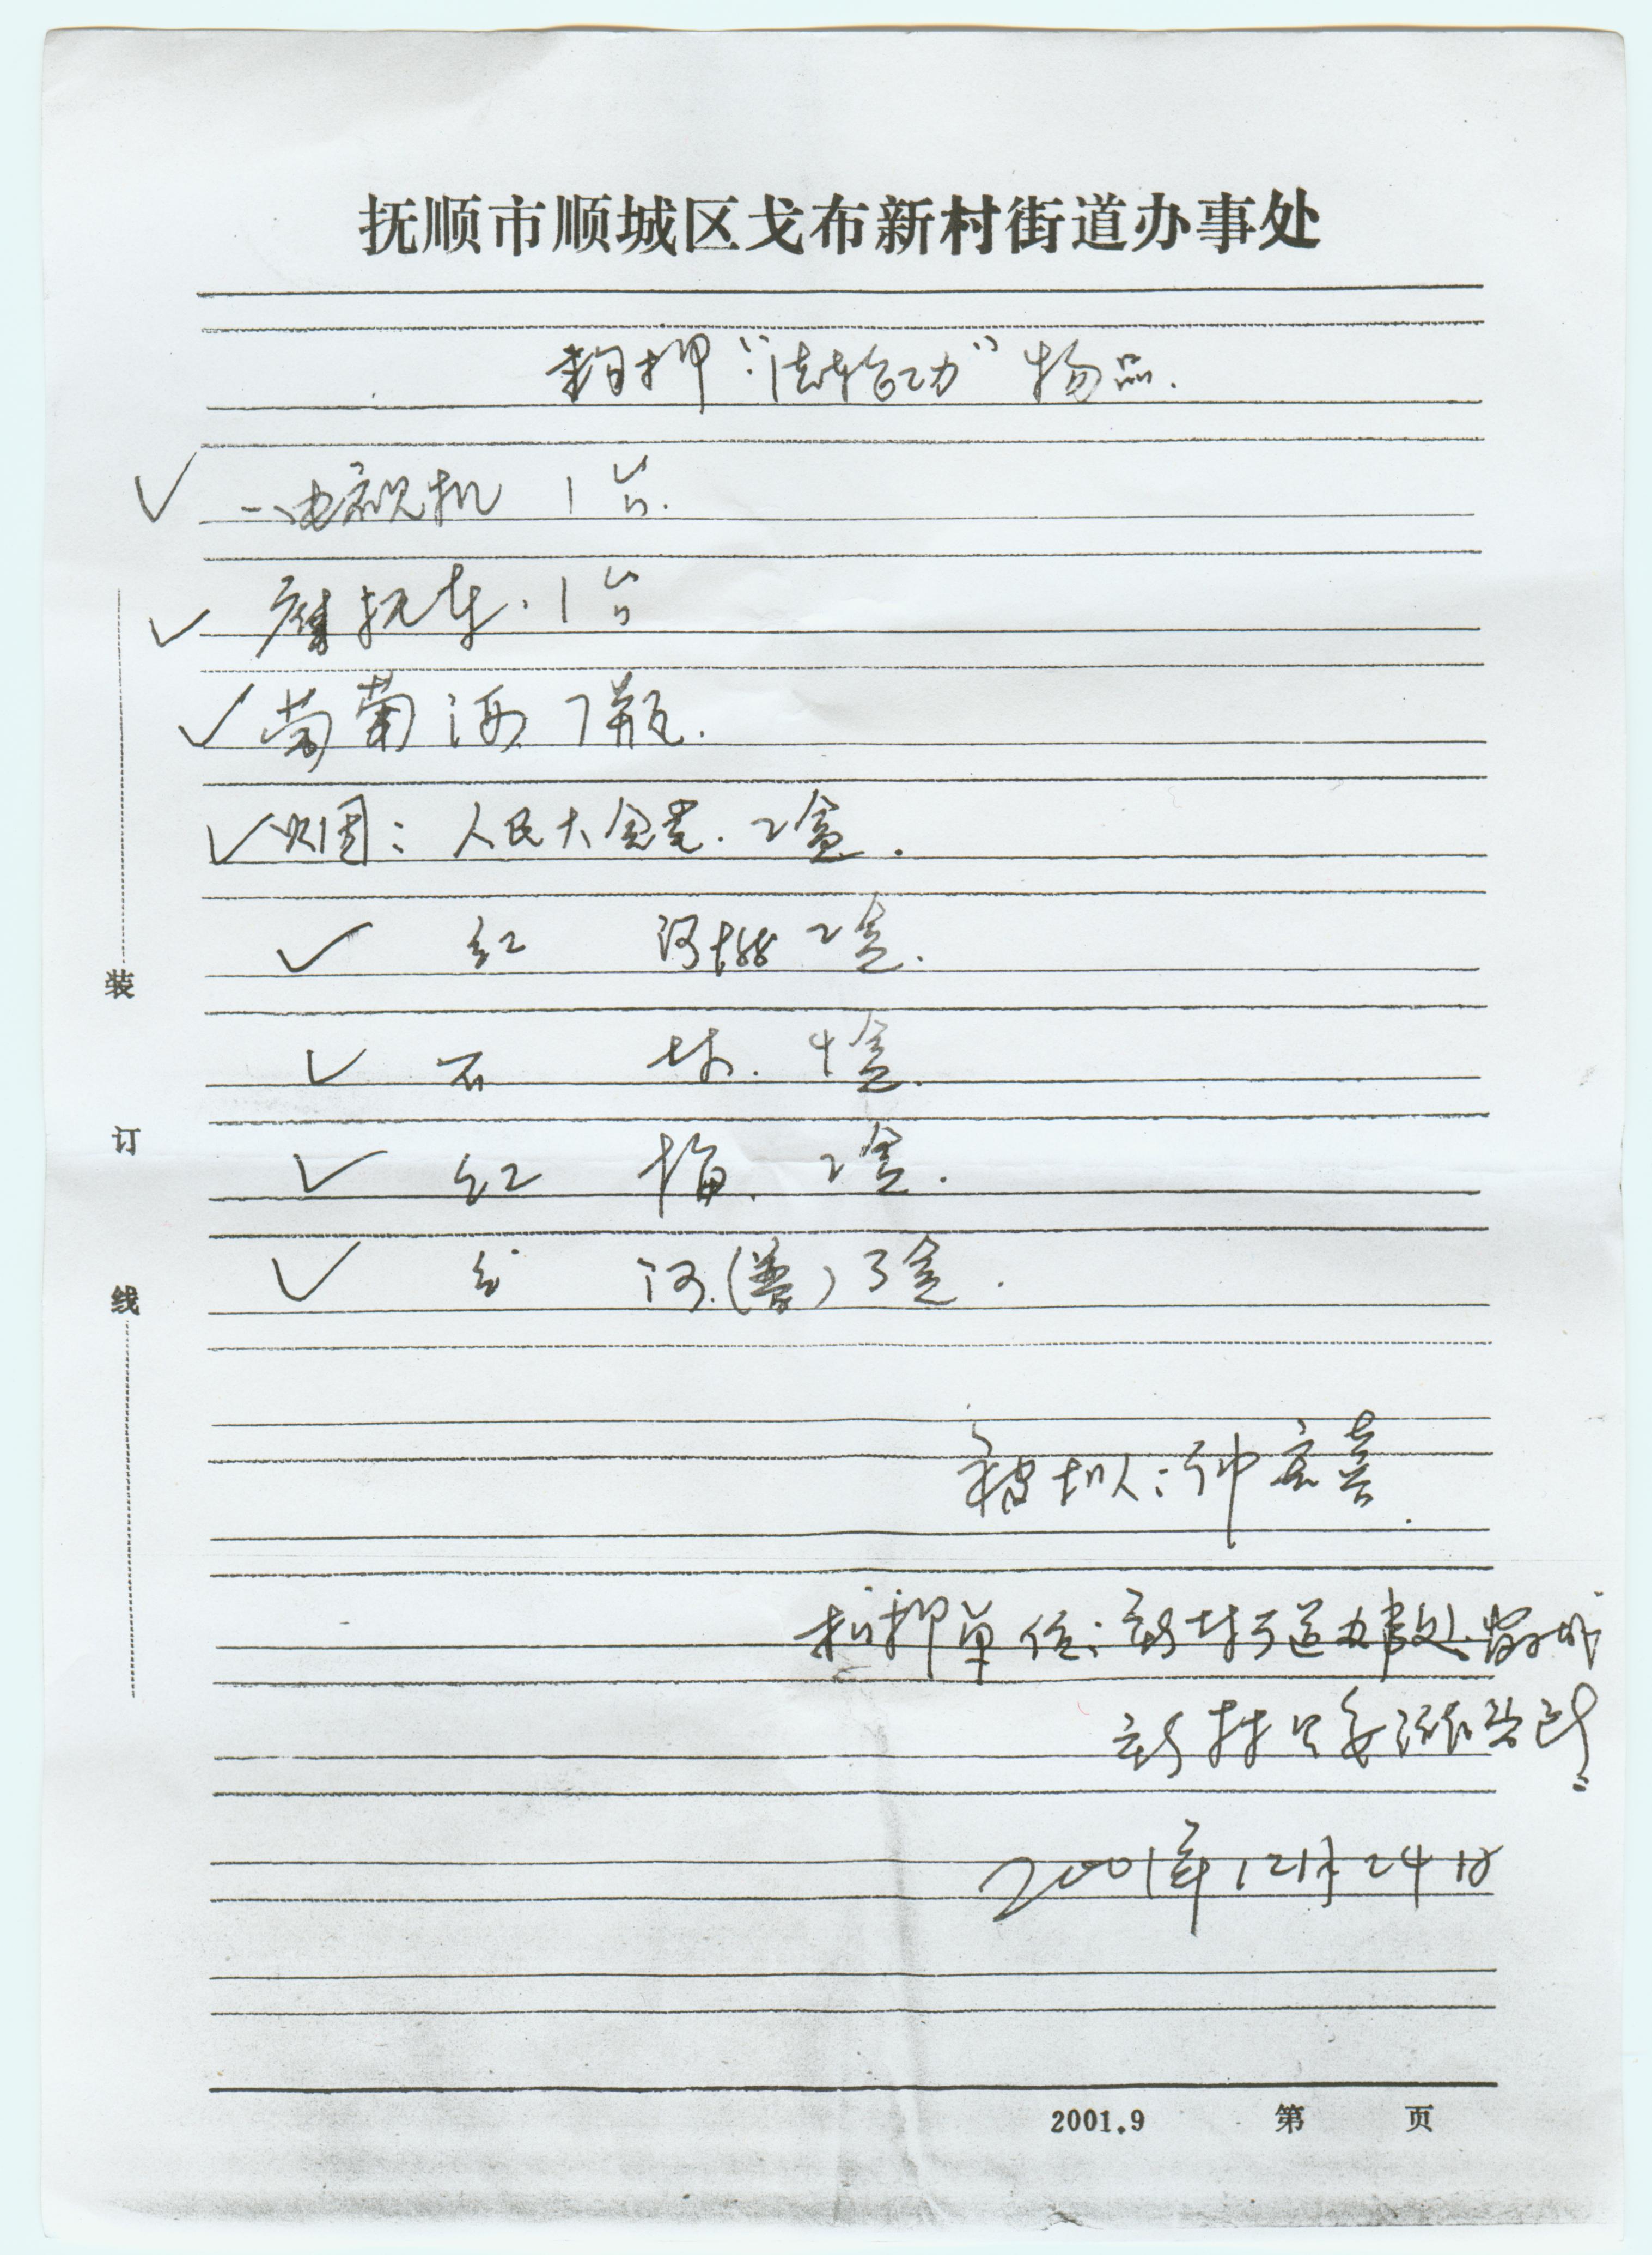 抚顺市顺城区戈布新村街道办事处
扣押“法轮功”物品.
一、电视机 1台.
摩托车.1台
葡萄酒 7瓶.
烟: 人民大会堂.2盒.
红 河 2盒.
石 林. 4盒.
红 梅. 2盒.
红 河(普)3盒.
被扣人:
扣押单位:新村街道办事处
新村
2001年12月24日
装
订
线
2001.9 第 页